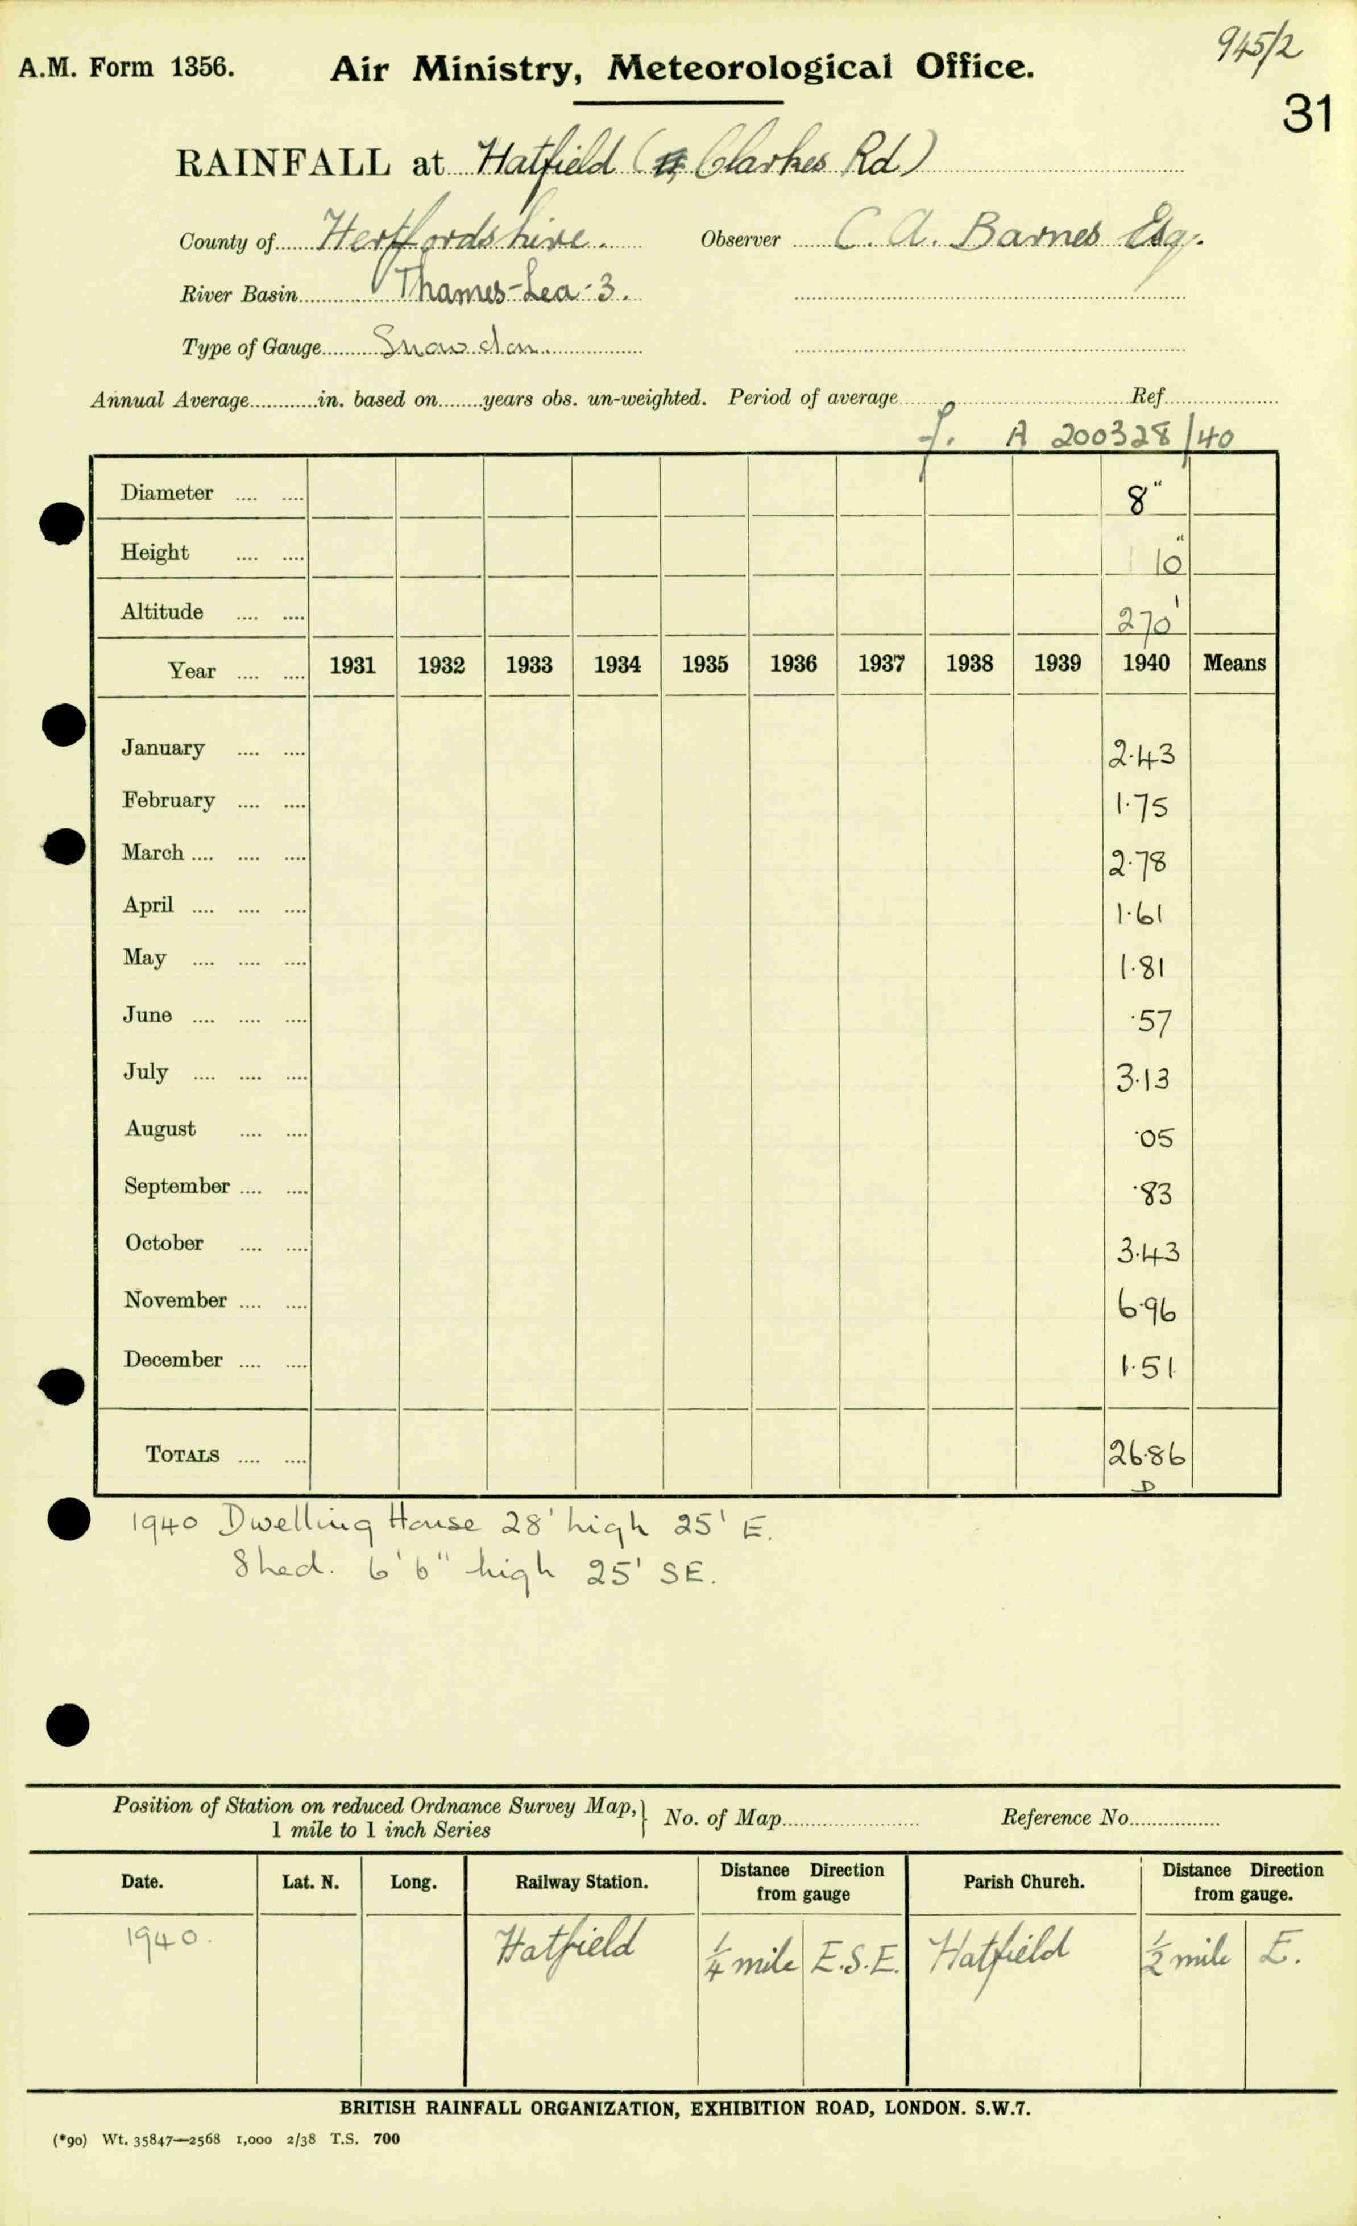 945/2
A.M. Form 1356. Air Ministry, Meteorological Office.
31
RAINFALL at Hatfield ( Clarkes Rd)
County of Hertfordshire. Observer C. A. Barnes Esq.
River Basin Thames-Lea-3.
Type of Gauge Snowdon
Annual Average in. based on years obs. un-weighted. Period of average Ref.
f. A 200328/40
Diameter .... .... 8"
Height .... .... 10"
Altitude .... .... 270'
Year .... .... 1931 1932 1933 1934 1935 1936 1937 1938 1939 1940 Means
January .... .... 2.43
February .... .... 1.75
March .... .... .... 2.78
April .... .... .... 1.61
May .... .... .... 1.81
June .... .... .... .57
July .... .... .... 3.13
August .... .... .05
September .... .... .83
October .... .... 3.43
November .... .... 6.96
December .... .... 1.51
TOTALS .... .... 26.86
D
1940 Dwelling House 28' high 25' E.
Shed. 6'6" high 25' SE.
Position of Station on reduced Ordnance Survey Map, } No. of Map Reference No.
1 mile to 1 inch Series
Date. Lat. N. Long. Railway Station. Distance Direction from gauge Parish Church. Distance Direction from gauge.
1940. Hatfield 1/4 mile E.S.E. Hatfield 1/2 mile E.
BRITISH RAINFALL ORGANIZATION, EXHIBITION ROAD, LONDON. S.W.7.
(*90) Wt. 35847—2568 1,000 2/38 T.S. 700